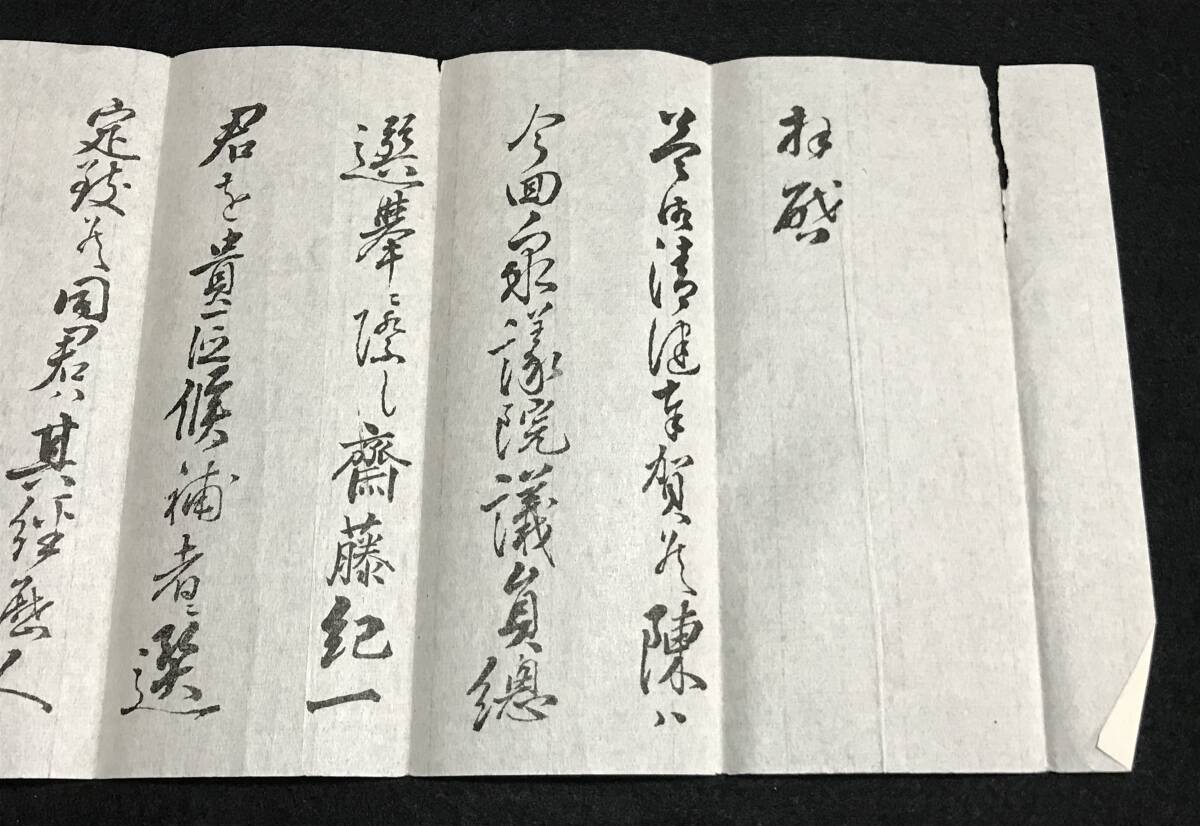 拝啓
益御清健奉賀候陳ハ
今回衆議院議員總
選挙ニ際し齋藤紀一
君を貴区候補者ニ選
定致候同君ハ其経歴人